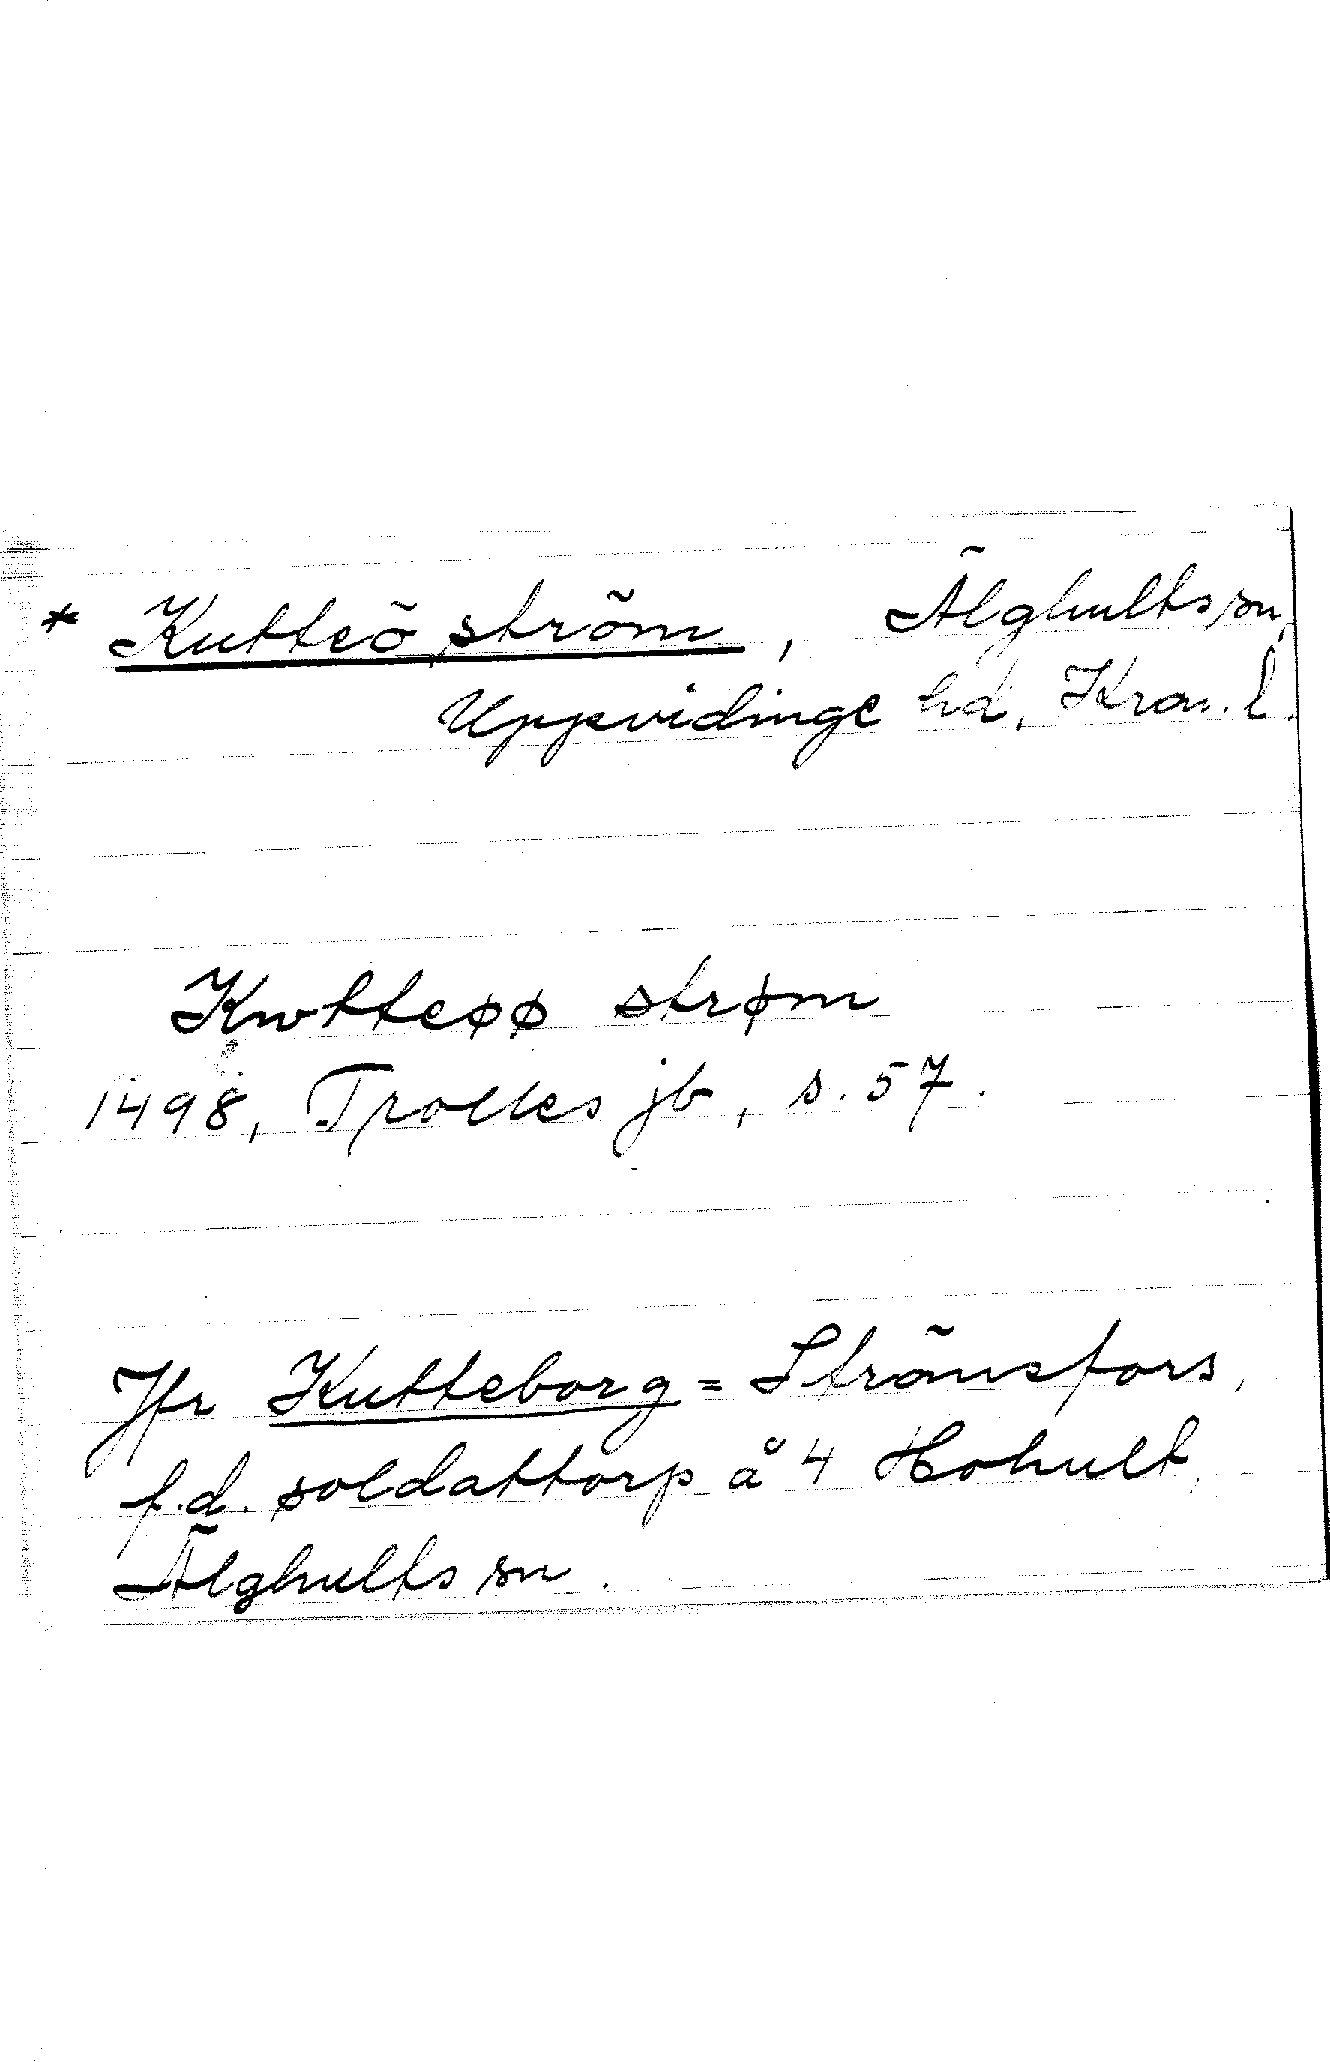 * Kutteö ström, Älghults sn,
Uppvidinge hd, Kron. l.
Kwtteøø strøm
1498, Trolles jb, s. 57.
Jfr Kutteborg = Strömsfors,
f.d. soldattorp å 4 Hohult,
Älghults sn.